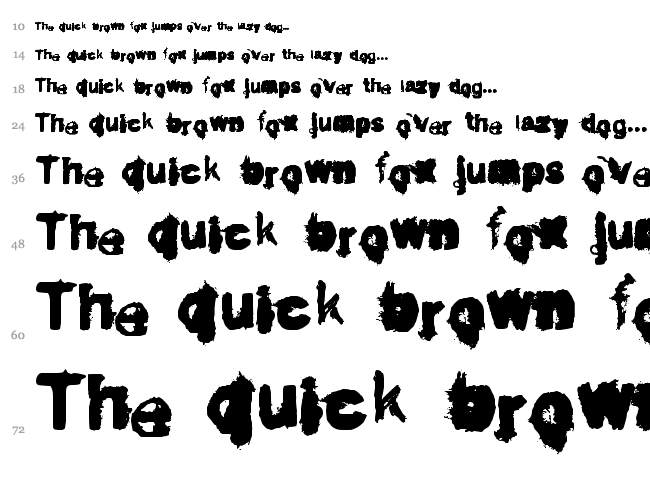 10 The quick brown fox jumps over the lazy dog...
14 The quick brown fox jumps over the lazy dog...
18 The quick brown fox jumps over the lazy dog...
24 The quick brown fox jumps over the lazy dog...
36 The quick brown fox jumps ove
48 The quick brown fox ju
60 The quick brown fo
72 The quick brow